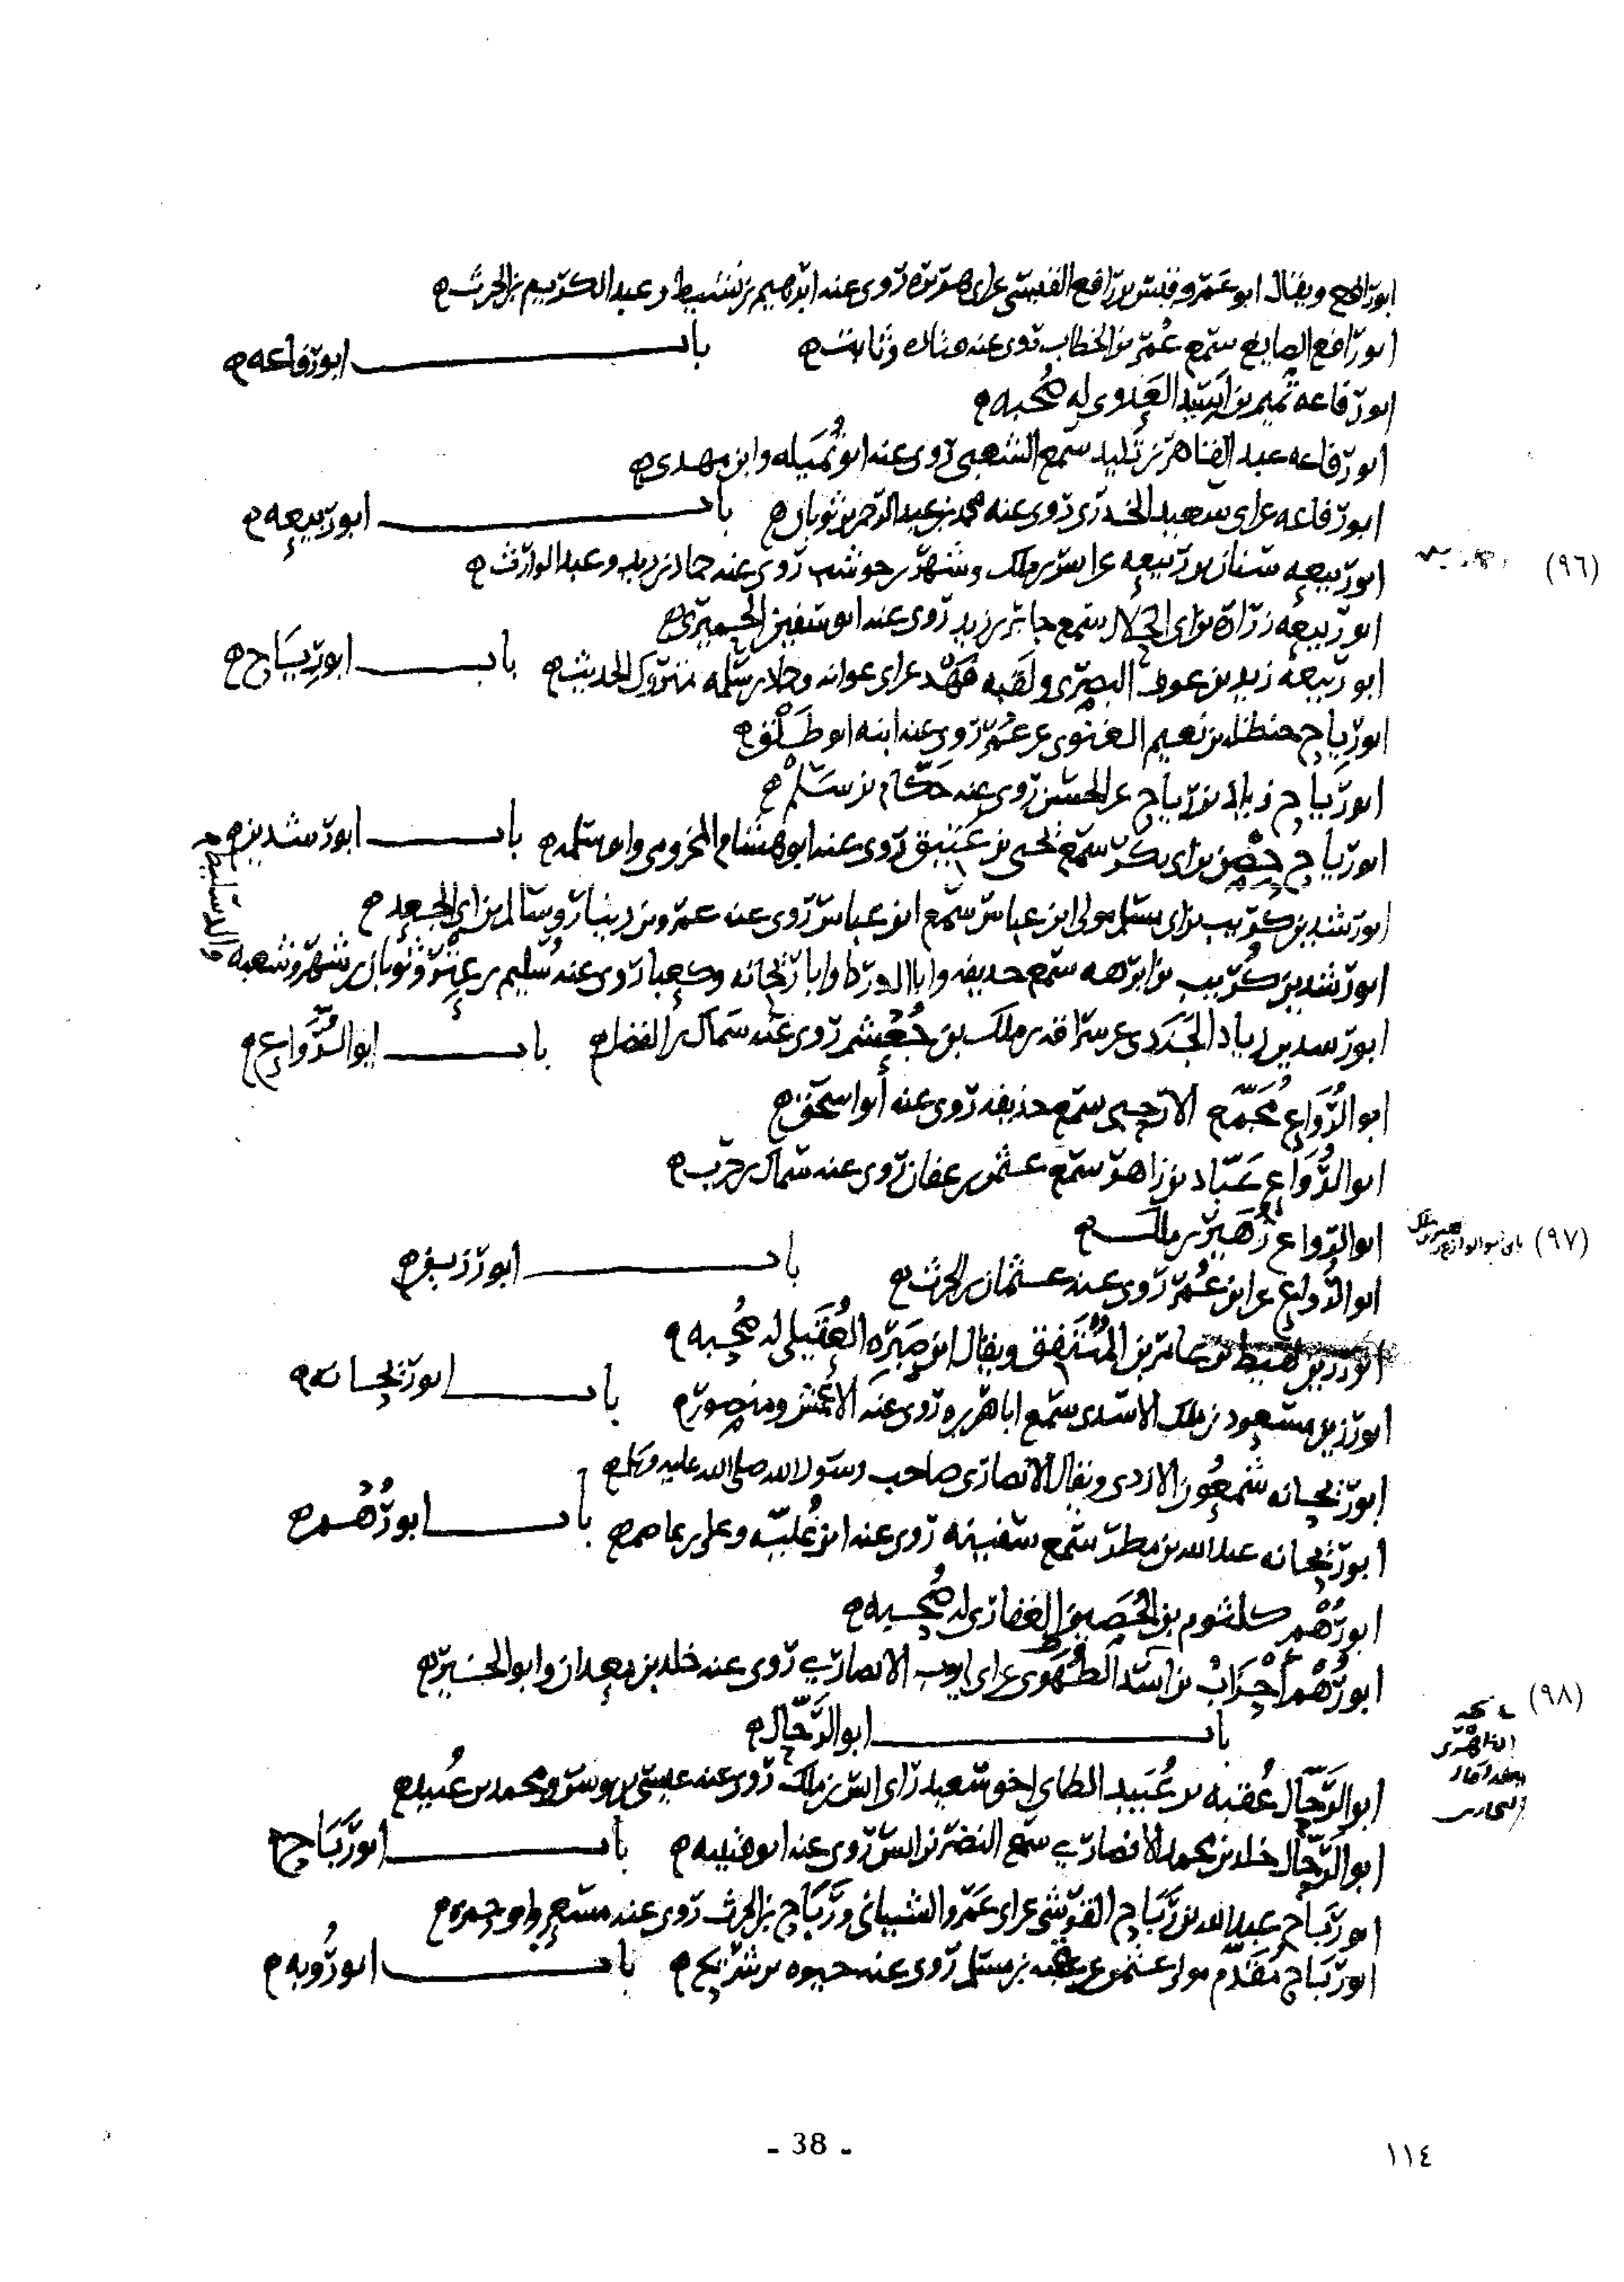 ابو رافع ويقال ابو عمرو قيس بن رافع القيسي عن ابي هريرة روى عنه ابرهيم بن نشيط وعبد الكريم بن الحرث ه
ابو رافع الصايغ سمع عمر بن الخطاب روى عنه وثابت ه باب ابو رفاعه ه
ابو رفاعه تميم بن اسيد العدوي له صحبه ه
ابو رفاعه عبد القاهر بن تليد سمع الشعبي روى عنه ابو تميله وابن مهدي ه
ابو رفاعه عن ابي سعيد الخدري روى عنه محمد بن عبد الرحمن بن ثوبان ه باب ابو ربيعه ه
ابو ربيعه سنان بن ربيعه عن انس بن ملك وشهر بن حوشب روى عنه حماد بن زيد وعبد الوارث ه (٩٦)
ابو ربيعه زرارة بن ابي الحلال سمع جابر بن زيد روى عنه ابو سفين الحميري ه
ابو ربيعه زيد بن عوف البصري ولقبه فهد عن ابي عوانه وحماد بن سلمه متروك الحديث ه باب ابو رياح ه
ابو رياح حنظله بن نعيم الغنوي عن عمر روى عنه ابنه ابو طلق ه
ابو رياح زياد بن رياح عن الحسن روى عنه حكام بن سلم ه
ابو رياح حصن بن ابي بكر سمع يحيى بن عتيق روى عنه ابو هشام المخزومي وابو سلمه ه باب ابو رشدين ه
ابو رشدين كريب بن ابي مسلم مولى ابن عباس سمع ابن عباس روى عنه عمرو بن دينار وسالم بن ابي الجعد ه
ابو رشدين كريب بن ابرهه سمع حذيفه وابا الدردا وابا ريحانه وكعبا روى عنه سليم بن عتر وثوبان بن شهر وشعبه
ابو رشدين زياد الجندي عن سراقه بن ملك بن جعشم روى عنه سماك بن الفضل ه باب ابو الرواع ه
ابو الرواع مجمع الارحبي سمع حذيفه روى عنه ابو اسحق ه
ابو الرواع عباد بن زاهر سمع عثمن بن عفان روى عنه سماك بن حرب ه
ابو الرواع زهير بن ملك ه (٩٧)
ابو الرواع عن ابن عمر روى عنه عثمان بن الحرث ه باب ابو رزين ه
ابو رزين لقيط بن عامر بن المنتفق ويقال ابن صبره العقيلي له صحبه ه
ابو رزين مسعود بن ملك الاسدي سمع ابا هريره روى عنه الاعمش ومنصور ه باب ابو ريحانه ه
ابو ريحانه شمعون الازدي ويقال الانصاري صاحب رسول الله صلى الله عليه وسلم ه
ابو ريحانه عبد الله بن مطر سمع سفينه روى عنه ابن عليه وعلي بن عاصم ه باب ابو رهم ه
ابو رهم كلثوم بن الحصين الغفاري له صحبه ه
ابو رهم احزاب بن اسد الظهوي عن ابي ايوب الانصاري روى عنه خلد بن معدان وابو الخير ه (٩٨)
باب ابو الرحال ه
ابو الرحال عقبه بن عبيد الطاي اخو سعيد راى انس بن ملك روى عنه عيسى بن يونس ومحمد بن عبيد ه
ابو الرحال خلد بن محمد الانصاري سمع النضر بن انس روى عنه ابو قتيبه ه باب ابو رباح ه
ابو رباح عبد الله بن رباح القرشي عن ابي عمرو الشيباني ورباح بن الحرث روى عنه مسعر وابو حمزه ه
ابو رباح مقدم مولى عثمن عن عقبه بن مسلم روى عنه حيوه بن شريح ه باب ابو روبه ه
- 38 -
١١٤